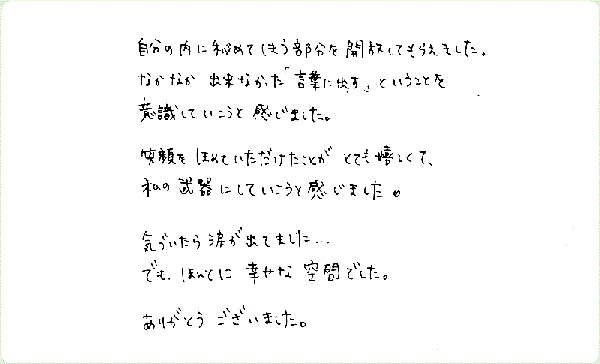 自分の内に秘めてしまう部分を開放してもらえました。
なかなか出来なかった「言葉に出す」ということを
意識していこうと感じました。
笑顔をほめていただけたことがとても嬉しくて、
私の武器にしていこうと感じました。
気づいたら涙が出てました…
でも、ほんとに幸せな空間でした。
ありがとうございました。